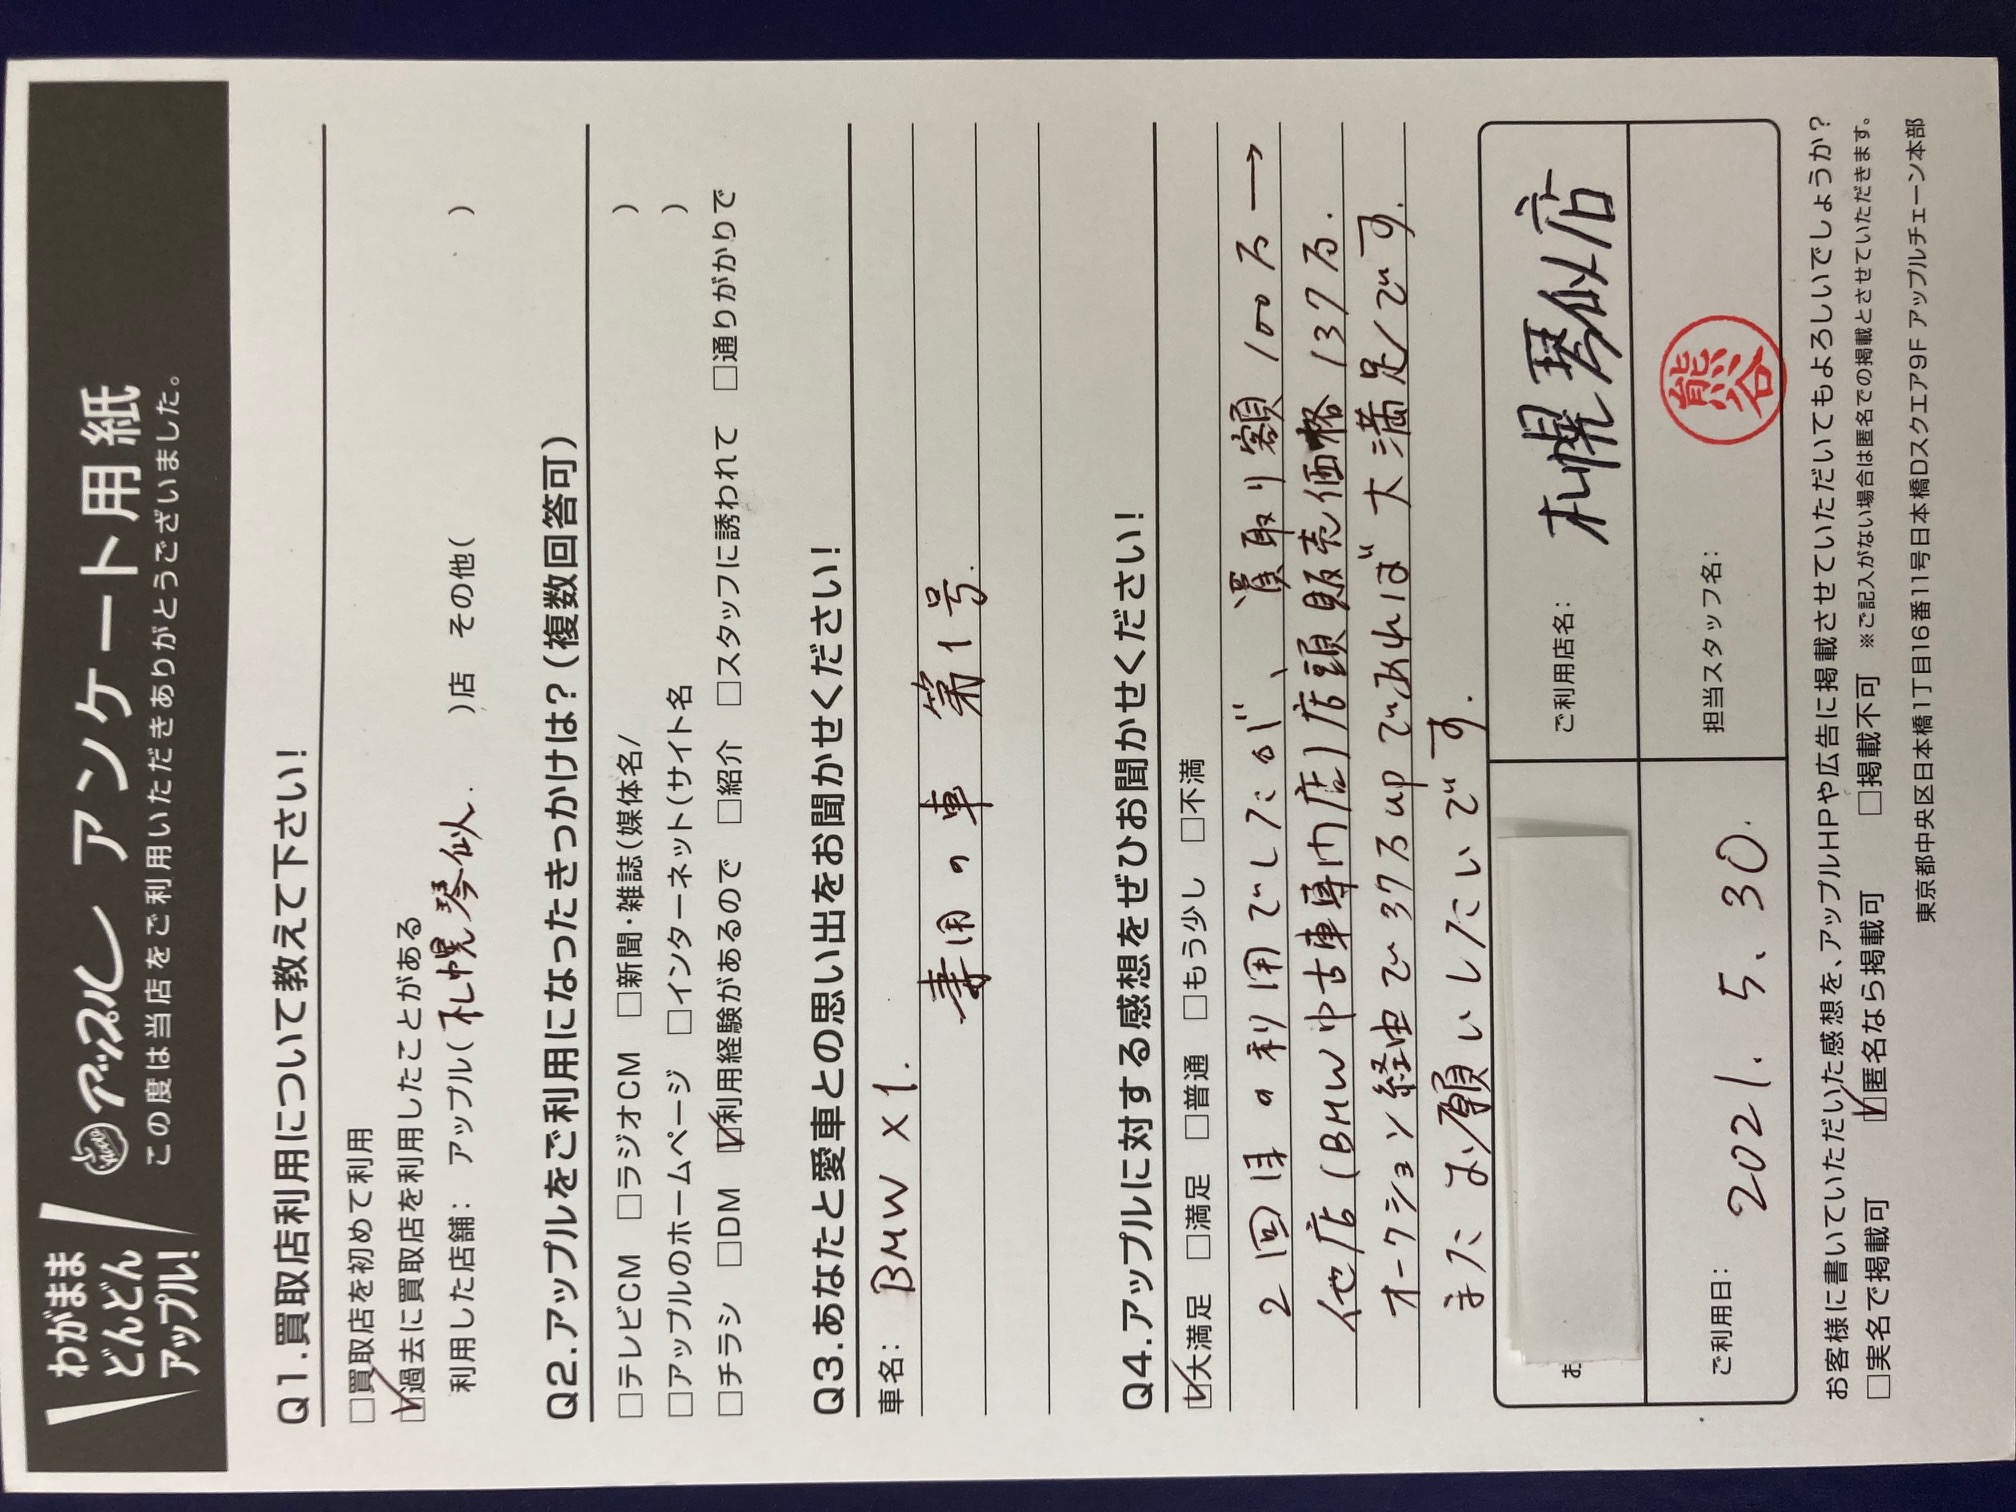 わがまま
どんどん
アップル!
Apple アップル アンケート用紙
この度は当店をご利用いただきありがとうございました。
Q1.買取店利用について教えて下さい!
□買取店を初めて利用
☑過去に買取店を利用したことがある
利用した店舗: アップル(札幌琴似. )店 その他( )
Q2.アップルをご利用になったきっかけは?(複数回答可)
□テレビCM □ラジオCM □新聞・雑誌(媒体名/ )
□アップルのホームページ □インターネット(サイト名 )
□チラシ □DM ☑利用経験があるので □紹介 □スタッフに誘われて □通りがかりで
Q3.あなたと愛車との思い出をお聞かせください!
車名: BMW X1.
妻用の車 第1号.
Q4.アップルに対する感想をぜひお聞かせください!
☑大満足 □満足 □普通 □もう少し □不満
2回目の利用でしたが、買取り額100万→
他店(BMW中古車専門店)店頭販売価格137万.
オークション経由で37万upであれば大満足です.
またお願いしたいです.
お
ご利用店名: 札幌琴似店
ご利用日: 2021.5.30.
担当スタッフ名: 熊谷
お客様に書いていただいた感想を、アップルHPや広告に掲載させていただいてもよろしいでしょうか?
□実名で掲載可 ☑匿名なら掲載可 □掲載不可 ※ご記入がない場合は匿名での掲載とさせていただきます。
東京都中央区日本橋1丁目16番11号日本橋Dスクエア9F アップルチェーン本部